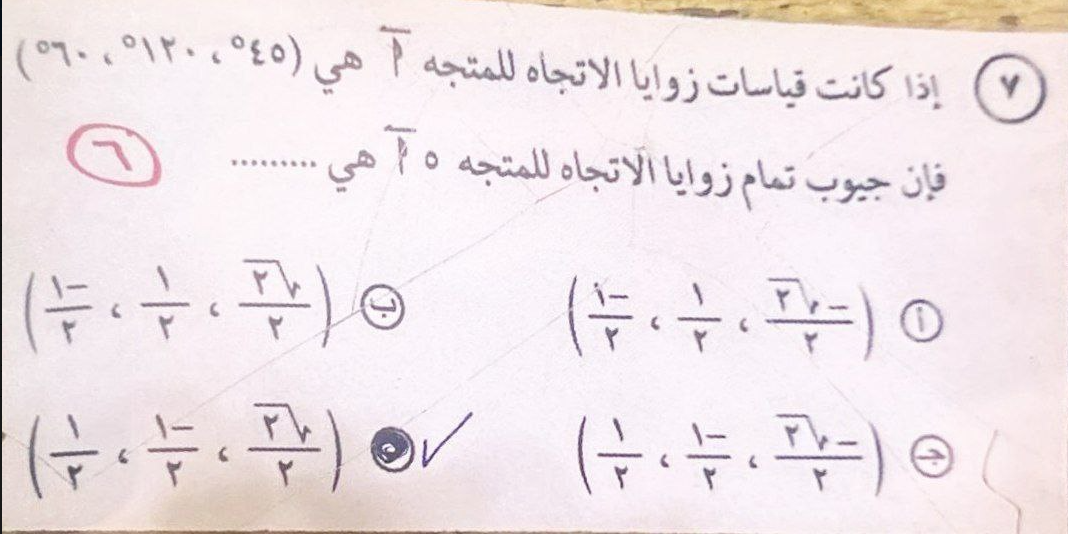 ٧ إذا كانت قياسات زوايا الاتجاه للمتجه أ هي (٤٥°، ١٢٠°، ٦٠°)
فإن جيوب تمام زوايا الاتجاه للمتجه ٥ أ هي .........
٦
أ (-√٢/٢ ، ١/٢ ، -١/٢) ب (√٢/٢ ، ١/٢ ، -١/٢)
ج (-√٢/٢ ، -١/٢ ، ١/٢) (√٢/٢ ، -١/٢ ، ١/٢)